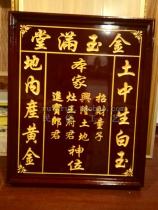 金玉滿堂
土中生白玉
本家
招財童子
興隆土地
灶王府君
進寶郎君
神位
地內產黃金